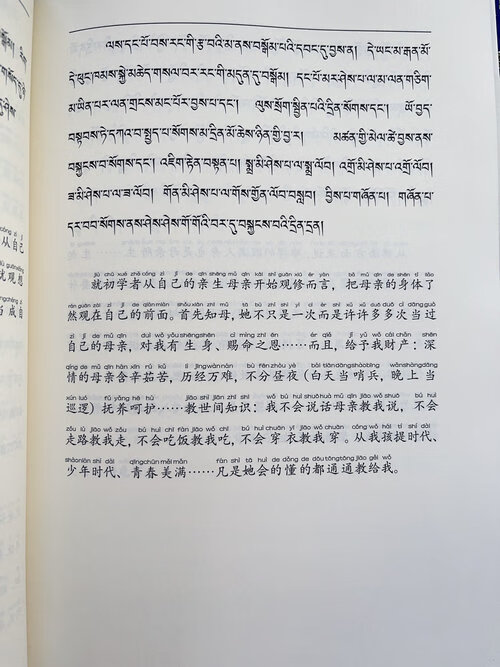 ལས་དང་པོ་བས་རང་གི་རྩ་བའི་མ་ནས་བསྒོམ་པའི་དབང་དུ་བྱས་ན། དེ་ཡང་མ་རྒན་མོ་
དེ་ཕུང་ཁམས་སྐྱེ་མཆེད་གསལ་བར་རང་གི་མདུན་དུ་བསྒོམ། དང་པོ་མར་ཤེས་པ་ལ་མ་ལན་གཅིག་
མ་ཡིན་པར་ལན་གྲངས་མང་པོར་བྱས་པ་དང་། ལུས་སྲོག་སྦྱིན་པའི་དྲིན་སོགས་དང་། ཡོ་བྱད་
བསྟབས་ཏེ་དཀའ་བ་སྤྱད་པ་སོགས་མ་དྲིན་མོ་ཆེས་ཉིན་གྱི་བྱ་ར། མཚན་གྱི་མེལ་ཚེ་བྱས་ནས་
བསྐྱངས་བ་སོགས་དང་། འཇིག་རྟེན་བསྟན་པ། སྨྲ་མི་ཤེས་པ་ལ་སྨྲ་ལོབ། འགྲོ་མི་ཤེས་པ་འགྲོ་ལོབ།
ཟ་མི་ཤེས་པ་ལ་ཟ་ལོབ། གོན་མི་ཤེས་པ་ལ་གོས་གྱོན་ལོབ་བསླབ། བྱིས་པ་གཞོན་པ། གཞོན་པ་
དར་བབ་སོགས་ནས་ཤེས་ཤེས་གོ་གོའི་བར་དུ་བསྐྱངས་བའི་དྲིན་དྲན།
jiù chū xué zhě cóng zì jǐ de qīn shēng mǔ qīn kāi shǐ guān xiū ér yán bǎ mǔ qīn de shēn tǐ liǎo
就初学者从自己的亲生母亲开始观修而言，把母亲的身体了
rán guān zài zì jǐ de qián miàn shǒu xiān zhī mǔ tā bù zhǐ shì yí cì ér shì xǔ xǔ duō duō cì dāng guò
然观在自己的前面。首先知母，她不只是一次而是许许多多次当过
zì jǐ de mǔ qīn duì wǒ yǒu shēng shēn cì mìng zhī ēn ér qiě jǐ yǔ wǒ cái chǎn shēn
自己的母亲，对我有生身、赐命之恩……而且，给予我财产：深
qíng de mǔ qīn hán xīn rú kǔ lì jīng wàn nàn bù fēn zhòu yè bái tiān dāng shào bīng wǎn shàng dāng
情的母亲含辛茹苦，历经万难，不分昼夜（白天当哨兵，晚上当
xún luó fǔ yǎng hē hù jiāo shì jiān zhī shi wǒ bú huì shuō huà mǔ qīn jiāo wǒ shuō bú huì
巡逻）抚养呵护……教世间知识：我不会说话母亲教我说，不会
zǒu lù jiāo wǒ zǒu bú huì chī fàn jiāo wǒ chī bú huì chuān yī jiāo wǒ chuān cóng wǒ hái tí shí dài
走路教我走，不会吃饭教我吃，不会穿衣教我穿。从我孩提时代、
shào nián shí dài qīng chūn měi mǎn fán shì tā huì de dǒng de dōu tōng tōng jiāo gěi wǒ
少年时代、青春美满……凡是她会的懂的都通通教给我。
从自己